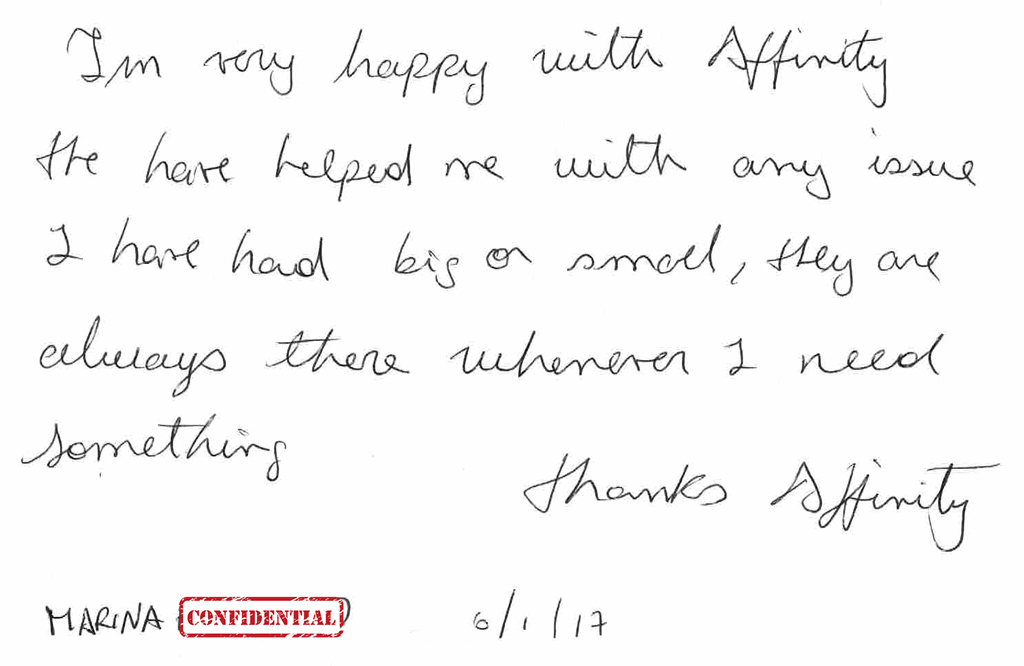 I'm very happy with Affinity
the have helped me with any issue
I have had big or small, they are
always there whenever I need
something
thanks Affinity
MARINA CONFIDENTIAL 6/1/17